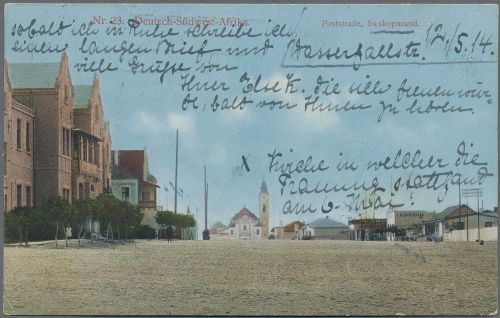 Nr. 23. Deutsch-Südwest-Afrika.
Poststraße, Swakopmund.
sobald ich in Ruhe schreibe ich
einen langen Brief und Wasserfallstr. 12/5.14.
viele Grüße von
Ihrer Else K. die sich freuen wür-
de, bald von Ihnen zu hören.
x Kirche in welcher die
Trauung stattfand
am 6. Mai.